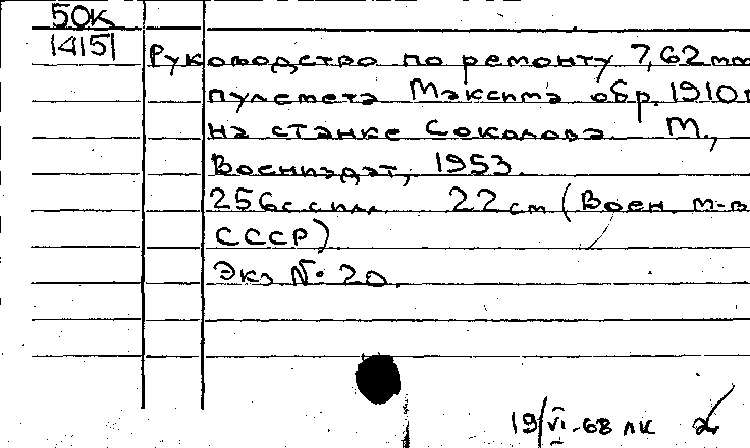 50К
14151
Руководство по ремонту 7,62 mm
пулемета Максима обр. 1910 г
на станке Соколова. М.,
Воениздат, 1953.
256 с с илл. 22 см (Воен. м-во
СССР)
Экз № 20.
19/VI-68 ЛК